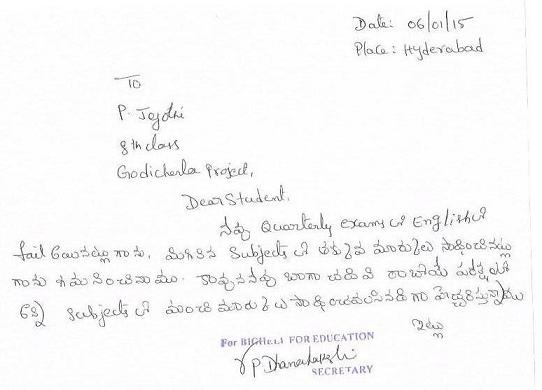 Date: 06/01/15
Place: Hyderabad
To
P. Jyothi
8th class
Godicherla Project,
Dear Student,
నీవు Quarterly exams లో English లో
fail అయినట్లు గాను, మిగిలిన Subjects లో తక్కువ మార్కులు సాధించినట్లు
గాను గమనించినాము. కావున నీవు బాగా చదివి రాబోయే పరీక్షలలో
అన్ని Subjects లో మంచి మార్కులు సాధించవలసినదిగా హెచ్చరిస్తున్నాము
ఇట్లు
For BIGHELP FOR EDUCATION
SECRETARY